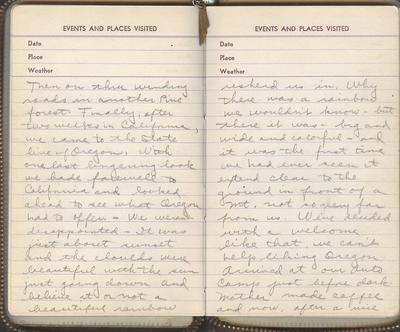 EVENTS AND PLACES VISITED
Date
Place
Weather
Then on thru winding
roads in another Pine
forest. Finally, after
two weeks in California,
we came to the State
line of Oregon. With
one last lingering look
we bade farewell to
California and looked
ahead to see what Oregon
had to offer - We weren't
disappointed - It was
just about sunset
and the clouds were
beautiful with the sun
just going down and
believe it or not a
beautiful rainbow
EVENTS AND PLACES VISITED
Date
Place
Weather
usherd us in. Why
there was a rainbow
we wouldn't know - but
there it was - big and
wide and colorful - and
it was the first time
we had ever seen it
extend clear to the
ground in front of a
mt. not so very far
from us. We've decided
with a welcome
like that, we can't
help liking Oregon
Arrived at our Auto
Camp just before dark
Mother made coffee
and now, after a nice